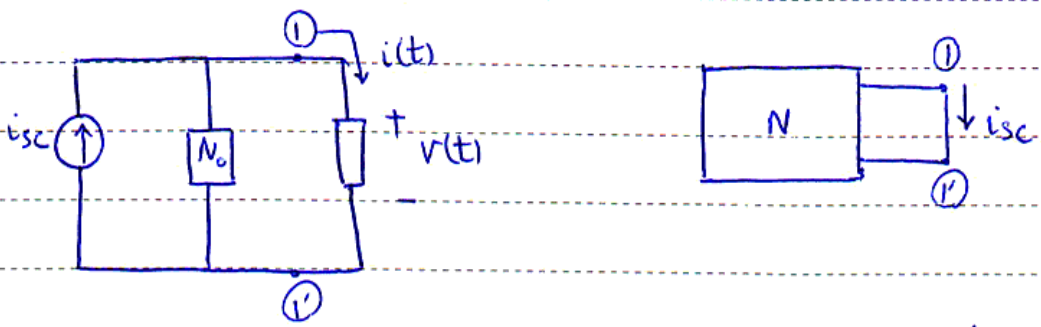 ① i(t)
isc N₀ + v(t) −
①'
N ① isc
①'